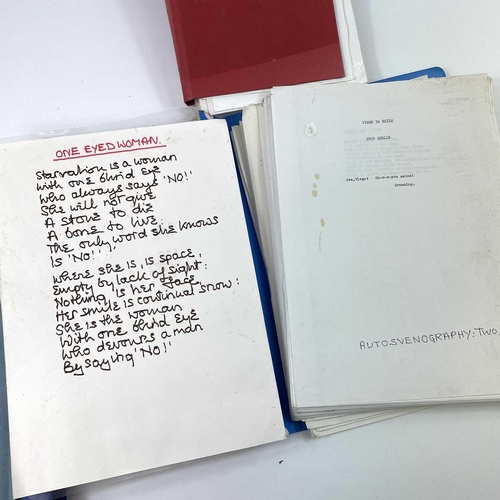 ONE EYED WOMAN.
Starvation is a woman
With one blind Eye
Who always says 'NO!'
She will not give
A stone to die
A bone to live...
The only word she knows
Is 'No!'
Where she is, is space,
Empty by lack of sight:
Nothing is her face
Her smile is continual snow:
She is the woman
With one blind Eye
Who devours a man
By saying 'NO!'
AUTOSVENOGRAPHY: TWO